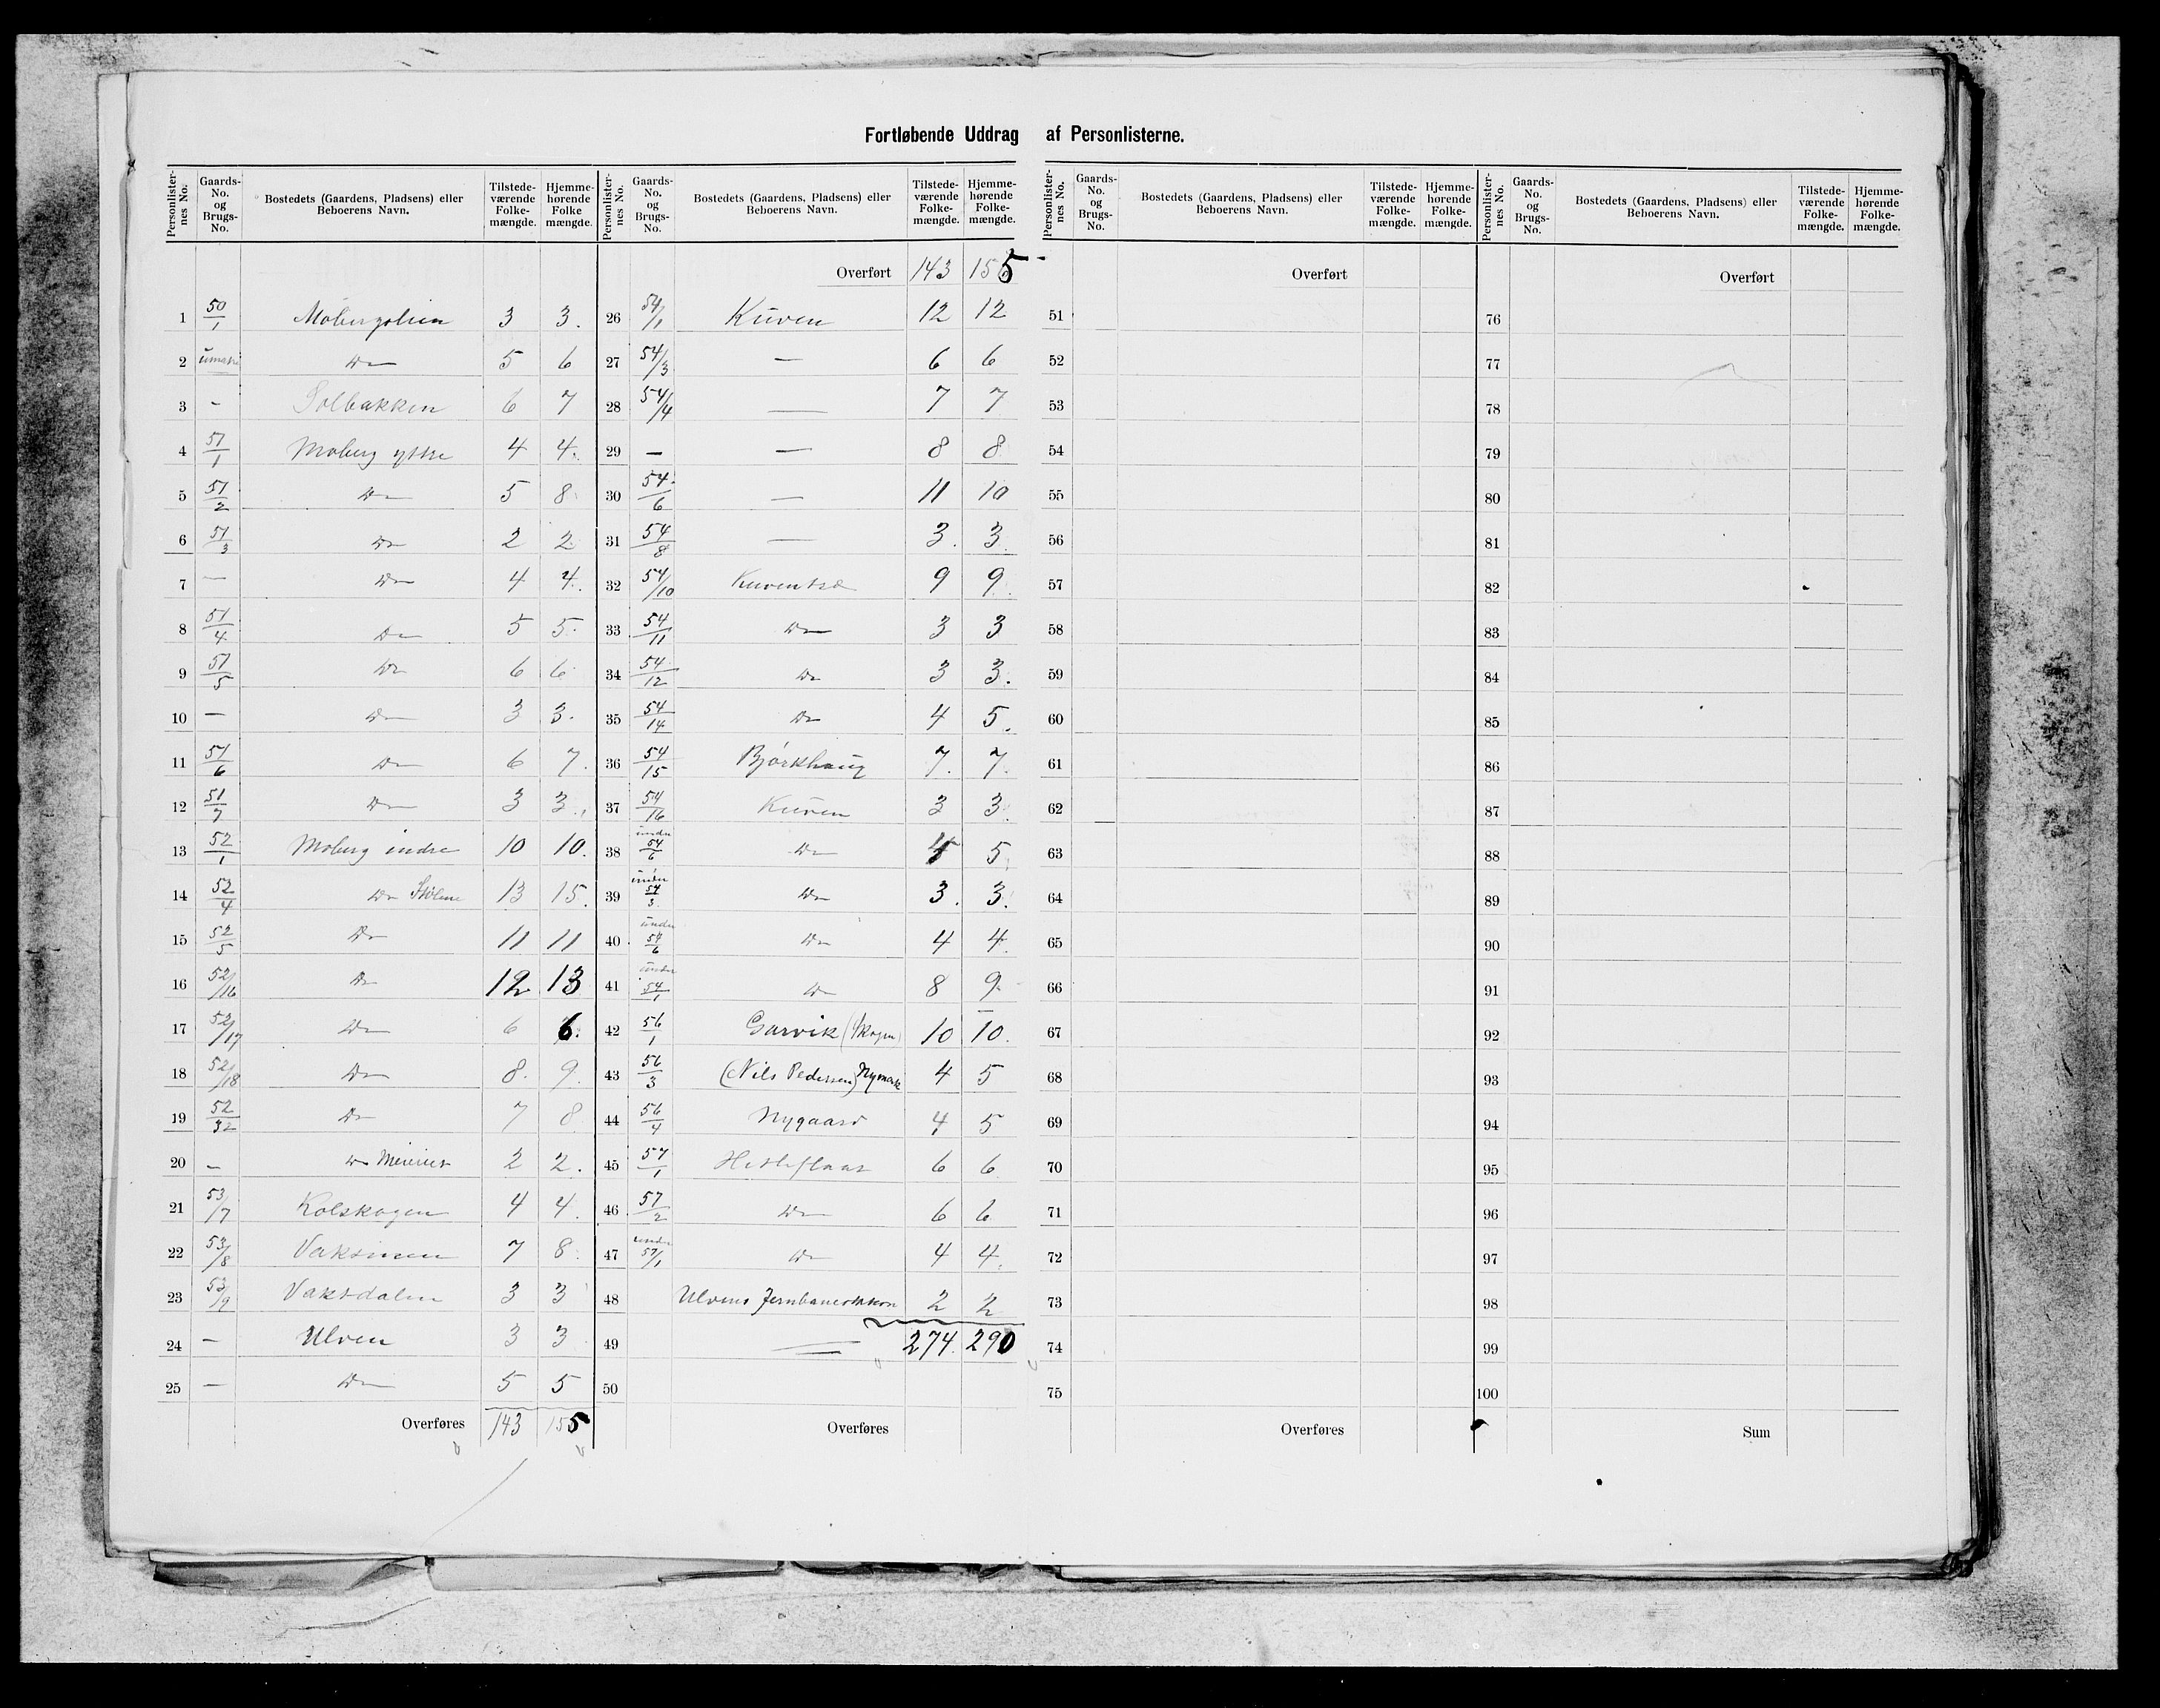 Fortløbende Uddrag af Personlisterne.
Personlister-nes No. | Gaards-No. og Brugs-No. | Bostedets (Gaardens, Pladsens) eller Beboerens Navn. | Tilstede-værende Folke-mængde. | Hjemme-hørende Folke mængde.
1 50/1 Mobergslien 3 3.
2 umatr Do 5 6
3 - Solbakken 6 7
4 51/1 Moberg ytre 4 4.
5 51/2 Do 5 8
6 51/3 Do 2 2
7 — Do 4 4.
8 51/4 Do 5 5.
9 51/5 Do 6 6
10 — Do 3 3.
11 51/6 Do 6 7.
12 51/7 Do 3 3.
13 52/1 Moberg indre 10 10.
14 52/4 Do 13 15.
15 52/5 Do 11 11
16 52/16 Do 12 13
17 52/17 Do 6 6.
18 52/18 Do 8. 9.
19 52/32 Do 7 8
20 - Do Meieriet 2 2.
21 53/7 Kolskogen 4 4.
22 53/8 7 8.
23 53/9 Vaksdalen 3 3
24 — Ulven 3 3
25 — Do 5 5
Overføres 143 155
Personlister-nes No. | Gaards-No. og Brugs-No. | Bostedets (Gaardens, Pladsens) eller Beboerens Navn. | Tilstede-værende Folke-mængde. | Hjemme-hørende Folke-mængde.
Overført 143 155
26 54/1 Kuven 12 12
27 54/3 — 6 6
28 54/4 — 7 7
29 — — 8 8
30 54/6 — 11 10
31 54/8 — 3. 3
32 54/10 9 9
33 54/11 Do 3 3
34 54/12 Do 3 3.
35 54/14 Do 4 5.
36 54/15 Bjørkhaug 7. 7.
37 54/16 Kuven 3 3.
38 under 54/6 Do 5
39 under 54/3 Do 3. 3.
40 under 54/6 Do 4 4.
41 under 54/1 Do 8 9.
42 56/1 Garvik (Skogen) 10 10.
43 56/3 (Nils Pedersen) Nymark 4 5
44 56/4 Nygaard 4 5
45 57/1 Hetleflaat 6 6
46 57/2 Do 6 6
47 under 57/1 Do 4 4.
48 Ulvens 2 2
49 274. 290
50
Overføres
Personlister-nes No. | Gaards-No. og Brugs-No. | Bostedets (Gaardens, Pladsens) eller Beboerens Navn. | Tilstede-værende Folke-mængde. | Hjemme-hørende Folke-mængde.
Overført
51
52
53
54
55
56
57
58
59
60
61
62
63
64
65
66
67
68
69
70
71
72
73
74
75
Overføres
Personlister-nes No. | Gaards-No. og Brugs-No. | Bostedets (Gaardens, Pladsens) eller Beboerens Navn. | Tilstede-værende Folke-mængde. | Hjemme-hørende Folke-mængde.
Overført
76
77
78
79
80
81
82
83
84
85
86
87
88
89
90
91
92
93
94
95
96
97
98
99
100
Sum